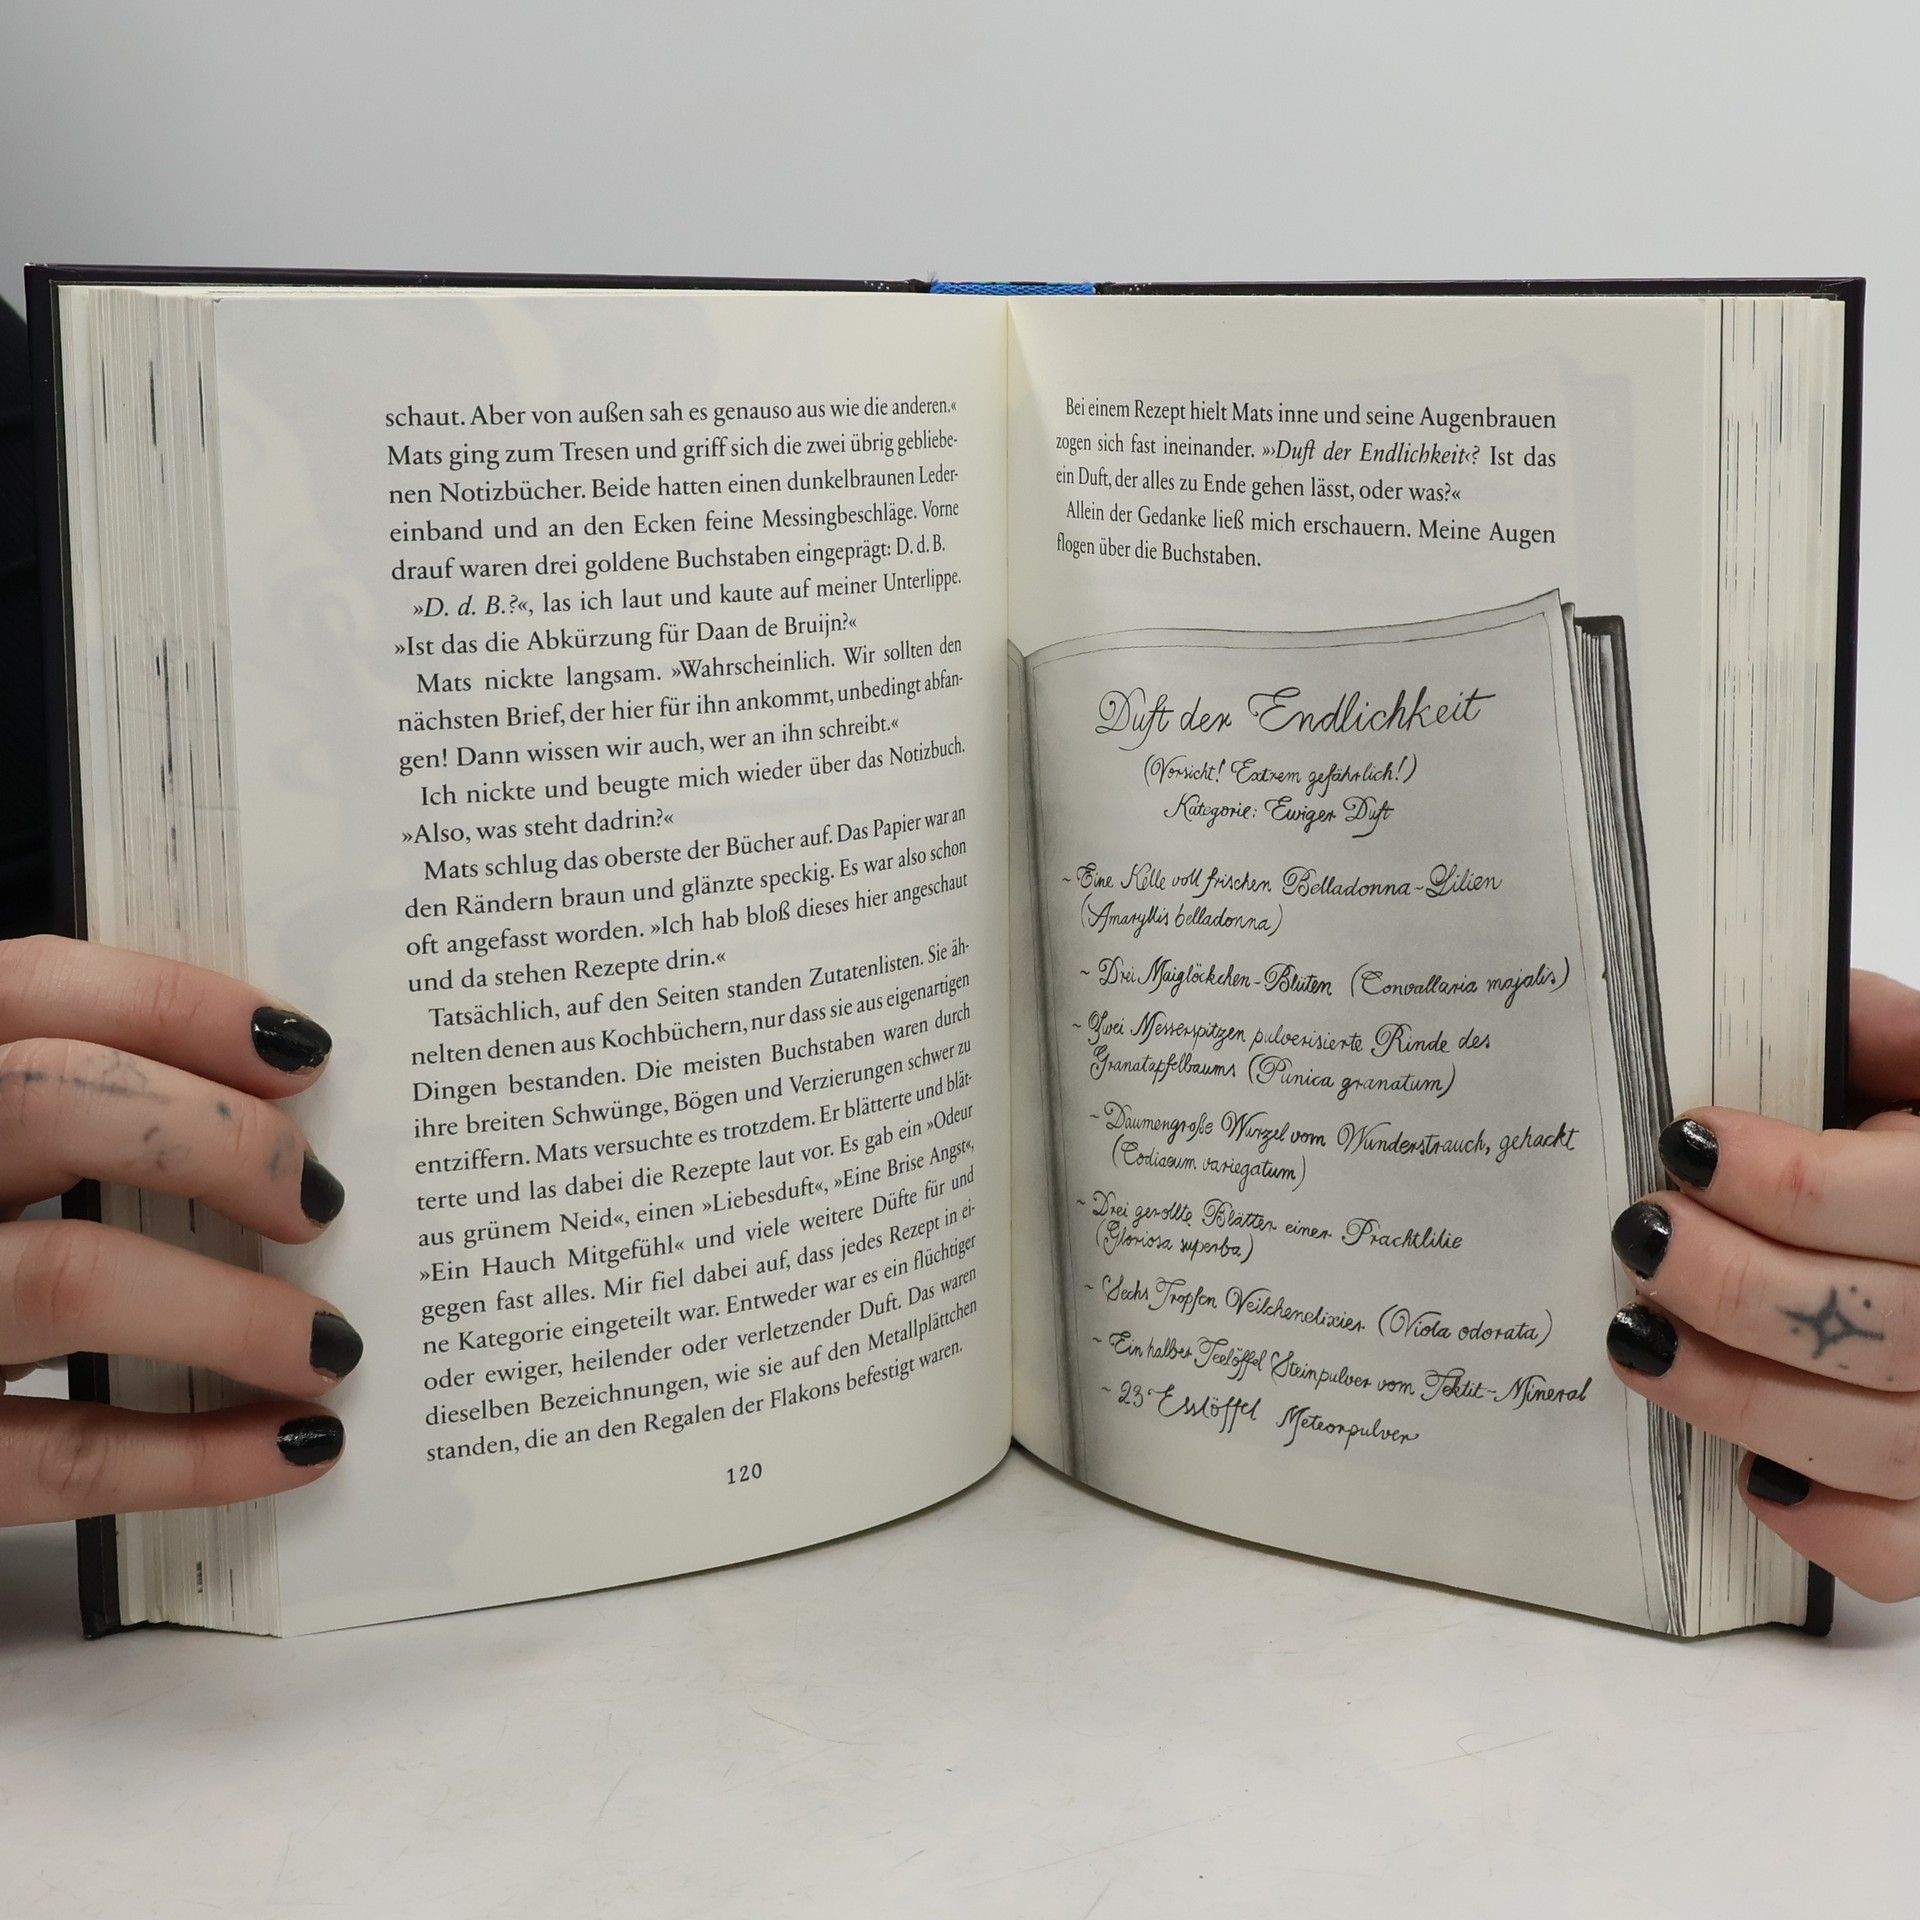 schaut. Aber von außen sah es genauso aus wie die anderen.«
Mats ging zum Tresen und griff sich die zwei übrig gebliebe-
nen Notizbücher. Beide hatten einen dunkelbraunen Leder-
einband und an den Ecken feine Messingbeschläge. Vorne
drauf waren drei goldene Buchstaben eingeprägt: D. d. B.
»D. d. B.?«, las ich laut und kaute auf meiner Unterlippe.
»Ist das die Abkürzung für Daan de Bruijn?«
Mats nickte langsam. »Wahrscheinlich. Wir sollten den
nächsten Brief, der hier für ihn ankommt, unbedingt abfan-
gen! Dann wissen wir auch, wer an ihn schreibt.«
Ich nickte und beugte mich wieder über das Notizbuch.
»Also, was steht dadrin?«
Mats schlug das oberste der Bücher auf. Das Papier war an
den Rändern braun und glänzte speckig. Es war also schon
oft angefasst worden. »Ich hab bloß dieses hier angeschaut
und da stehen Rezepte drin.«
Tatsächlich, auf den Seiten standen Zutatenlisten. Sie äh-
nelten denen aus Kochbüchern, nur dass sie aus eigenartigen
Dingen bestanden. Die meisten Buchstaben waren durch
ihre breiten Schwünge, Bögen und Verzierungen schwer zu
entziffern. Mats versuchte es trotzdem. Er blätterte und blät-
terte und las dabei die Rezepte laut vor. Es gab ein »Odeur
aus grünem Neid«, einen »Liebesduft«, »Eine Brise Angst«,
»Ein Hauch Mitgefühl« und viele weitere Düfte für und
gegen fast alles. Mir fiel dabei auf, dass jedes Rezept in ei-
ne Kategorie eingeteilt war. Entweder war es ein flüchtiger
oder ewiger, heilender oder verletzender Duft. Das waren
dieselben Bezeichnungen, wie sie auf den Metallplättchen
standen, die an den Regalen der Flakons befestigt waren.
120
Bei einem Rezept hielt Mats inne und seine Augenbrauen
zogen sich fast ineinander. »›Duft der Endlichkeit‹? Ist das
ein Duft, der alles zu Ende gehen lässt, oder was?«
Allein der Gedanke ließ mich erschauern. Meine Augen
flogen über die Buchstaben.
Duft der Endlichkeit
(Vorsicht! Extrem gefährlich!)
Kategorie: Ewiger Duft
~ Eine Kelle voll frischen Belladonna-Lilien
(Amaryllis belladonna)
~ Drei Maiglöckchen-Blüten (Convallaria majalis)
~ Zwei Messerspitzen pulverisierte Rinde des
Granatapfelbaums (Punica granatum)
~ Daumengroße Wurzel vom Wunderstrauch, gehackt
(Codiaeum variegatum)
~ Drei gerollte Blätter einer Prachtlilie
(Gloriosa superba)
~ Sechs Tropfen Veilchenelixier (Viola odorata)
~ Ein halber Teelöffel Steinpulver vom Tektit-Mineral
~ 23 Esslöffel Meteorpulver